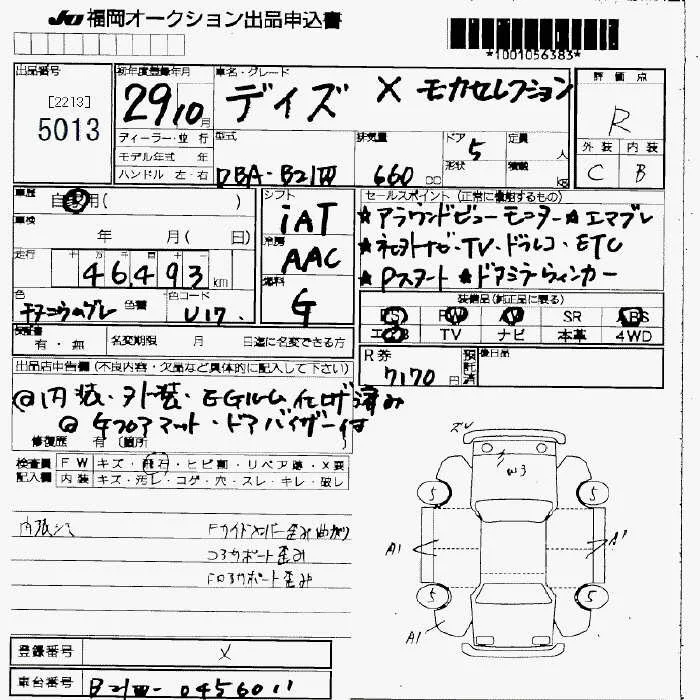 JU 福岡オークション出品申込書
*1001056383*
出品番号
[2213]
5013
初年度登録年月
29/10月
車名・グレード
デイズ X モカセレクション
評価点
R
外装 内装
C B
ディーラー・並行
モデル年式 年
ハンドル 左・右
型式
DBA-B21W
排気量
660 CC
ドア 5
形状
定員 人
積載 kg
車歴
自家用( )
車検
年 月( 日)
走行
46,493 km
色
チタニウムグレ
色替
色コード
シフト
iAT
冷房
AAC
燃料
G
セールスポイント (正常に機能するもの)
★アラウンドビューモニター★エマブレ
ナビ・TV・ドラレコ・ETC
★Pスタート★ドアミラーウィンカー
装備品(純正品に限る)
PS PW AW SR ABS
エアB TV ナビ 本革 4WD
保証書
有・無
名変期限 月 日迄に名変できる方
R券
7170円
預託済
後日品
出品店申告欄(不良内容・欠品など具体的に記入して下さい)
@内装・外装・EGルーム仕上げ済み
@フロアマット・ドアバイザー付
修復歴 有(箇所
検査員記入欄
FW キズ・飛石・ヒビ割・リペア跡・X要
内装 キズ・汚レ・コゲ・穴・スレ・キレ・破レ
内張シミ
Fサイドメンバー歪み曲がり
コアサポート歪み
ズレ
W3
5 5
A1 A1
5 5
A1
登録番号
X
車台番号
B21W-0456011